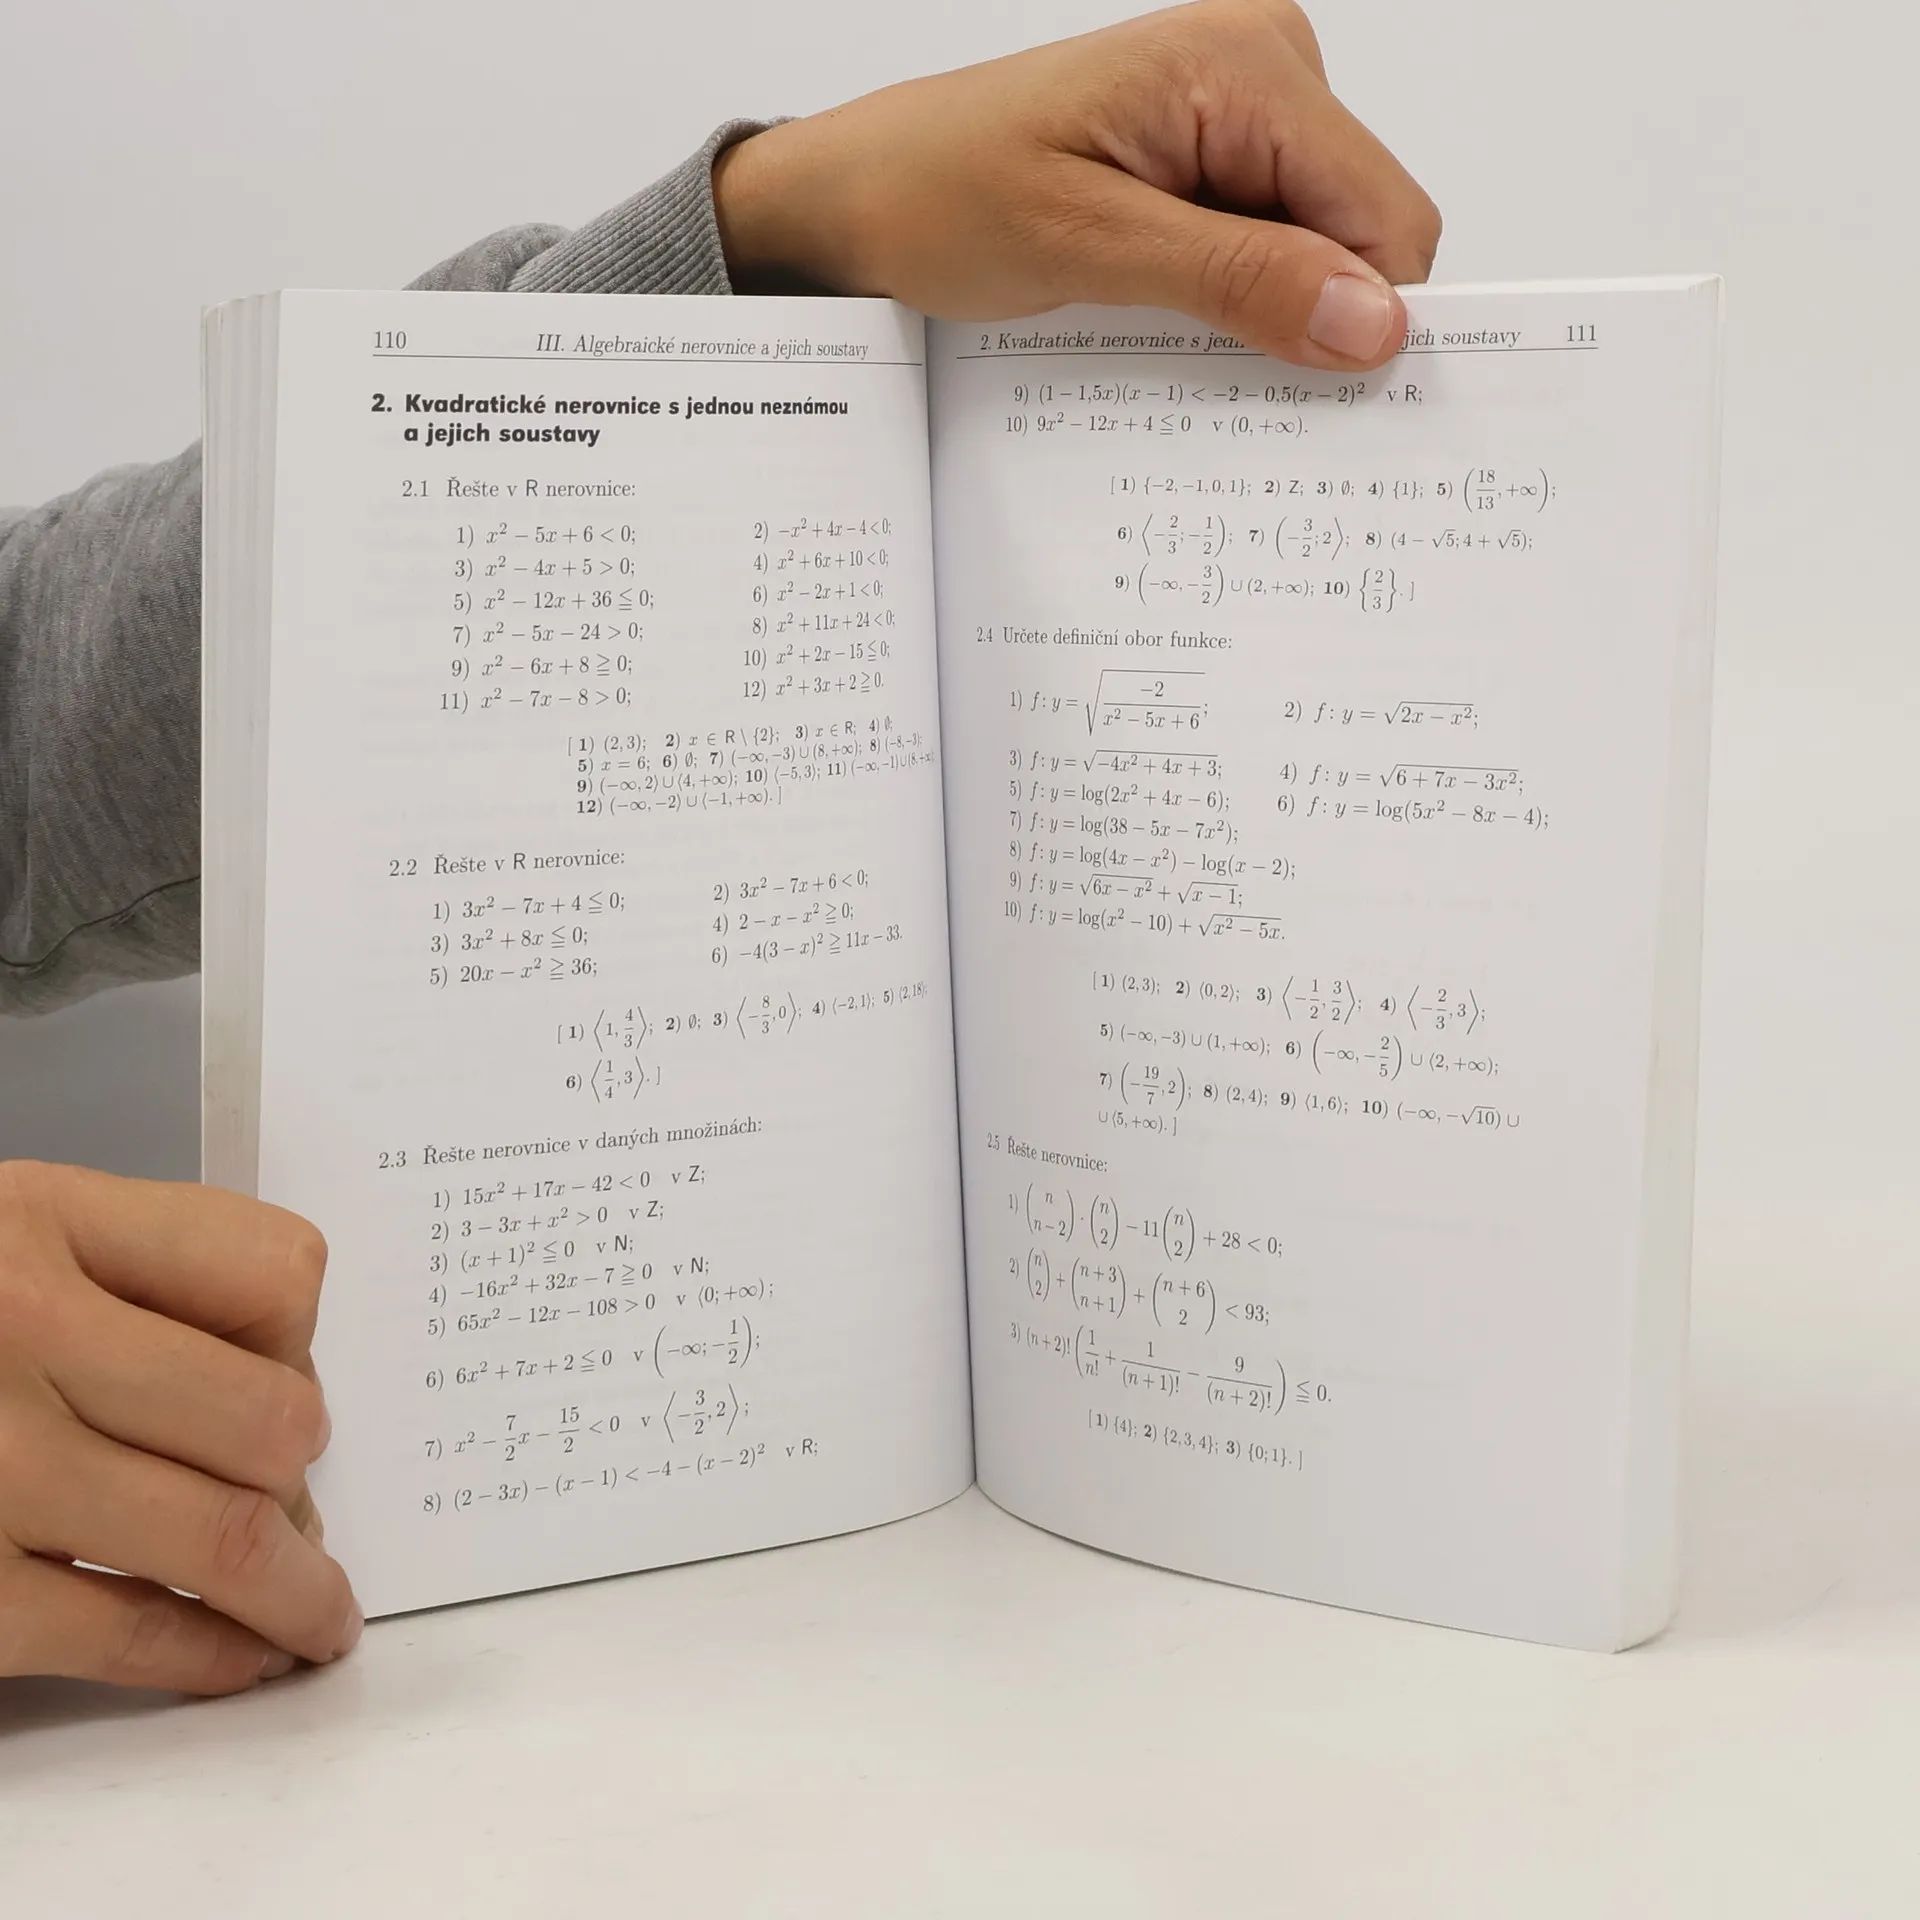 110 III. Algebraické nerovnice a jejich soustavy
2. Kvadratické nerovnice s jednou neznámou
a jejich soustavy
2.1 Řešte v R nerovnice:
1) x² − 5x + 6 < 0; 2) −x² + 4x − 4 < 0;
3) x² − 4x + 5 > 0; 4) x² + 6x + 10 < 0;
5) x² − 12x + 36 ≦ 0; 6) x² − 2x + 1 < 0;
7) x² − 5x − 24 > 0; 8) x² + 11x + 24 < 0;
9) x² − 6x + 8 ≧ 0; 10) x² + 2x − 15 ≦ 0;
11) x² − 7x − 8 > 0; 12) x² + 3x + 2 ≧ 0.
[ 1) (2, 3); 2) x ∈ R \ {2}; 3) x ∈ R; 4) ∅;
5) x = 6; 6) ∅; 7) (−∞, −3) ∪ (8, +∞); 8) (−8, −3);
9) (−∞, 2⟩ ∪ ⟨4, +∞); 10) ⟨−5, 3⟩; 11) (−∞, −1) ∪ (8, +∞);
12) (−∞, −2⟩ ∪ ⟨−1, +∞). ]
2.2 Řešte v R nerovnice:
1) 3x² − 7x + 4 ≦ 0; 2) 3x² − 7x + 6 < 0;
3) 3x² + 8x ≦ 0; 4) 2 − x − x² ≧ 0;
5) 20x − x² ≧ 36; 6) −4(3 − x)² ≧ 11x − 33.
[ 1) ⟨1, 4/3⟩; 2) ∅; 3) ⟨−8/3, 0⟩; 4) ⟨−2, 1⟩; 5) ⟨2, 18⟩;
6) ⟨1/4, 3⟩. ]
2.3 Řešte nerovnice v daných množinách:
1) 15x² + 17x − 42 < 0 v Z;
2) 3 − 3x + x² > 0 v Z;
3) (x + 1)² ≦ 0 v N;
4) −16x² + 32x − 7 ≧ 0 v N;
5) 65x² − 12x − 108 > 0 v ⟨0; +∞);
6) 6x² + 7x + 2 ≦ 0 v (−∞; −1/2);
7) x² − 7/2 x − 15/2 < 0 v ⟨−3/2, 2⟩;
8) (2 − 3x) − (x − 1) < −4 − (x − 2)² v R;
2. Kvadratické nerovnice s jejich soustavy 111
9) (1 − 1,5x)(x − 1) < −2 − 0,5(x − 2)² v R;
10) 9x² − 12x + 4 ≦ 0 v (0, +∞).
[ 1) {−2, −1, 0, 1}; 2) Z; 3) ∅; 4) {1}; 5) (18/13, +∞);
6) ⟨−2/3; −1/2); 7) (−3/2; 2⟩; 8) (4 − √5; 4 + √5);
9) (−∞, −3/2) ∪ (2, +∞); 10) {2/3}. ]
2.4 Určete definiční obor funkce:
1) f: y = √(−2/(x² − 5x + 6)); 2) f: y = √(2x − x²);
3) f: y = √(−4x² + 4x + 3); 4) f: y = √(6 + 7x − 3x²);
5) f: y = log(2x² + 4x − 6); 6) f: y = log(5x² − 8x − 4);
7) f: y = log(38 − 5x − 7x²);
8) f: y = log(4x − x²) − log(x − 2);
9) f: y = √(6x − x²) + √(x − 1);
10) f: y = log(x² − 10) + √(x² − 5x).
[ 1) (2, 3); 2) ⟨0, 2⟩; 3) ⟨−1/2, 3/2⟩; 4) ⟨−2/3, 3⟩;
5) (−∞, −3) ∪ (1, +∞); 6) (−∞, −2/5) ∪ (2, +∞);
7) (−19/7, 2); 8) (2, 4); 9) ⟨1, 6⟩; 10) (−∞, −√10) ∪
∪ ⟨5, +∞). ]
2.5 Řešte nerovnice:
1) (n n−2) · (n 2) − 11(n 2) + 28 < 0;
2) (n 2) + (n+3 n+1) + (n+6 2) < 93;
3) (n + 2)! (1/n! + 1/(n + 1)! − 9/(n + 2)!) ≦ 0.
[ 1) {4}; 2) {2, 3, 4}; 3) {0; 1}. ]